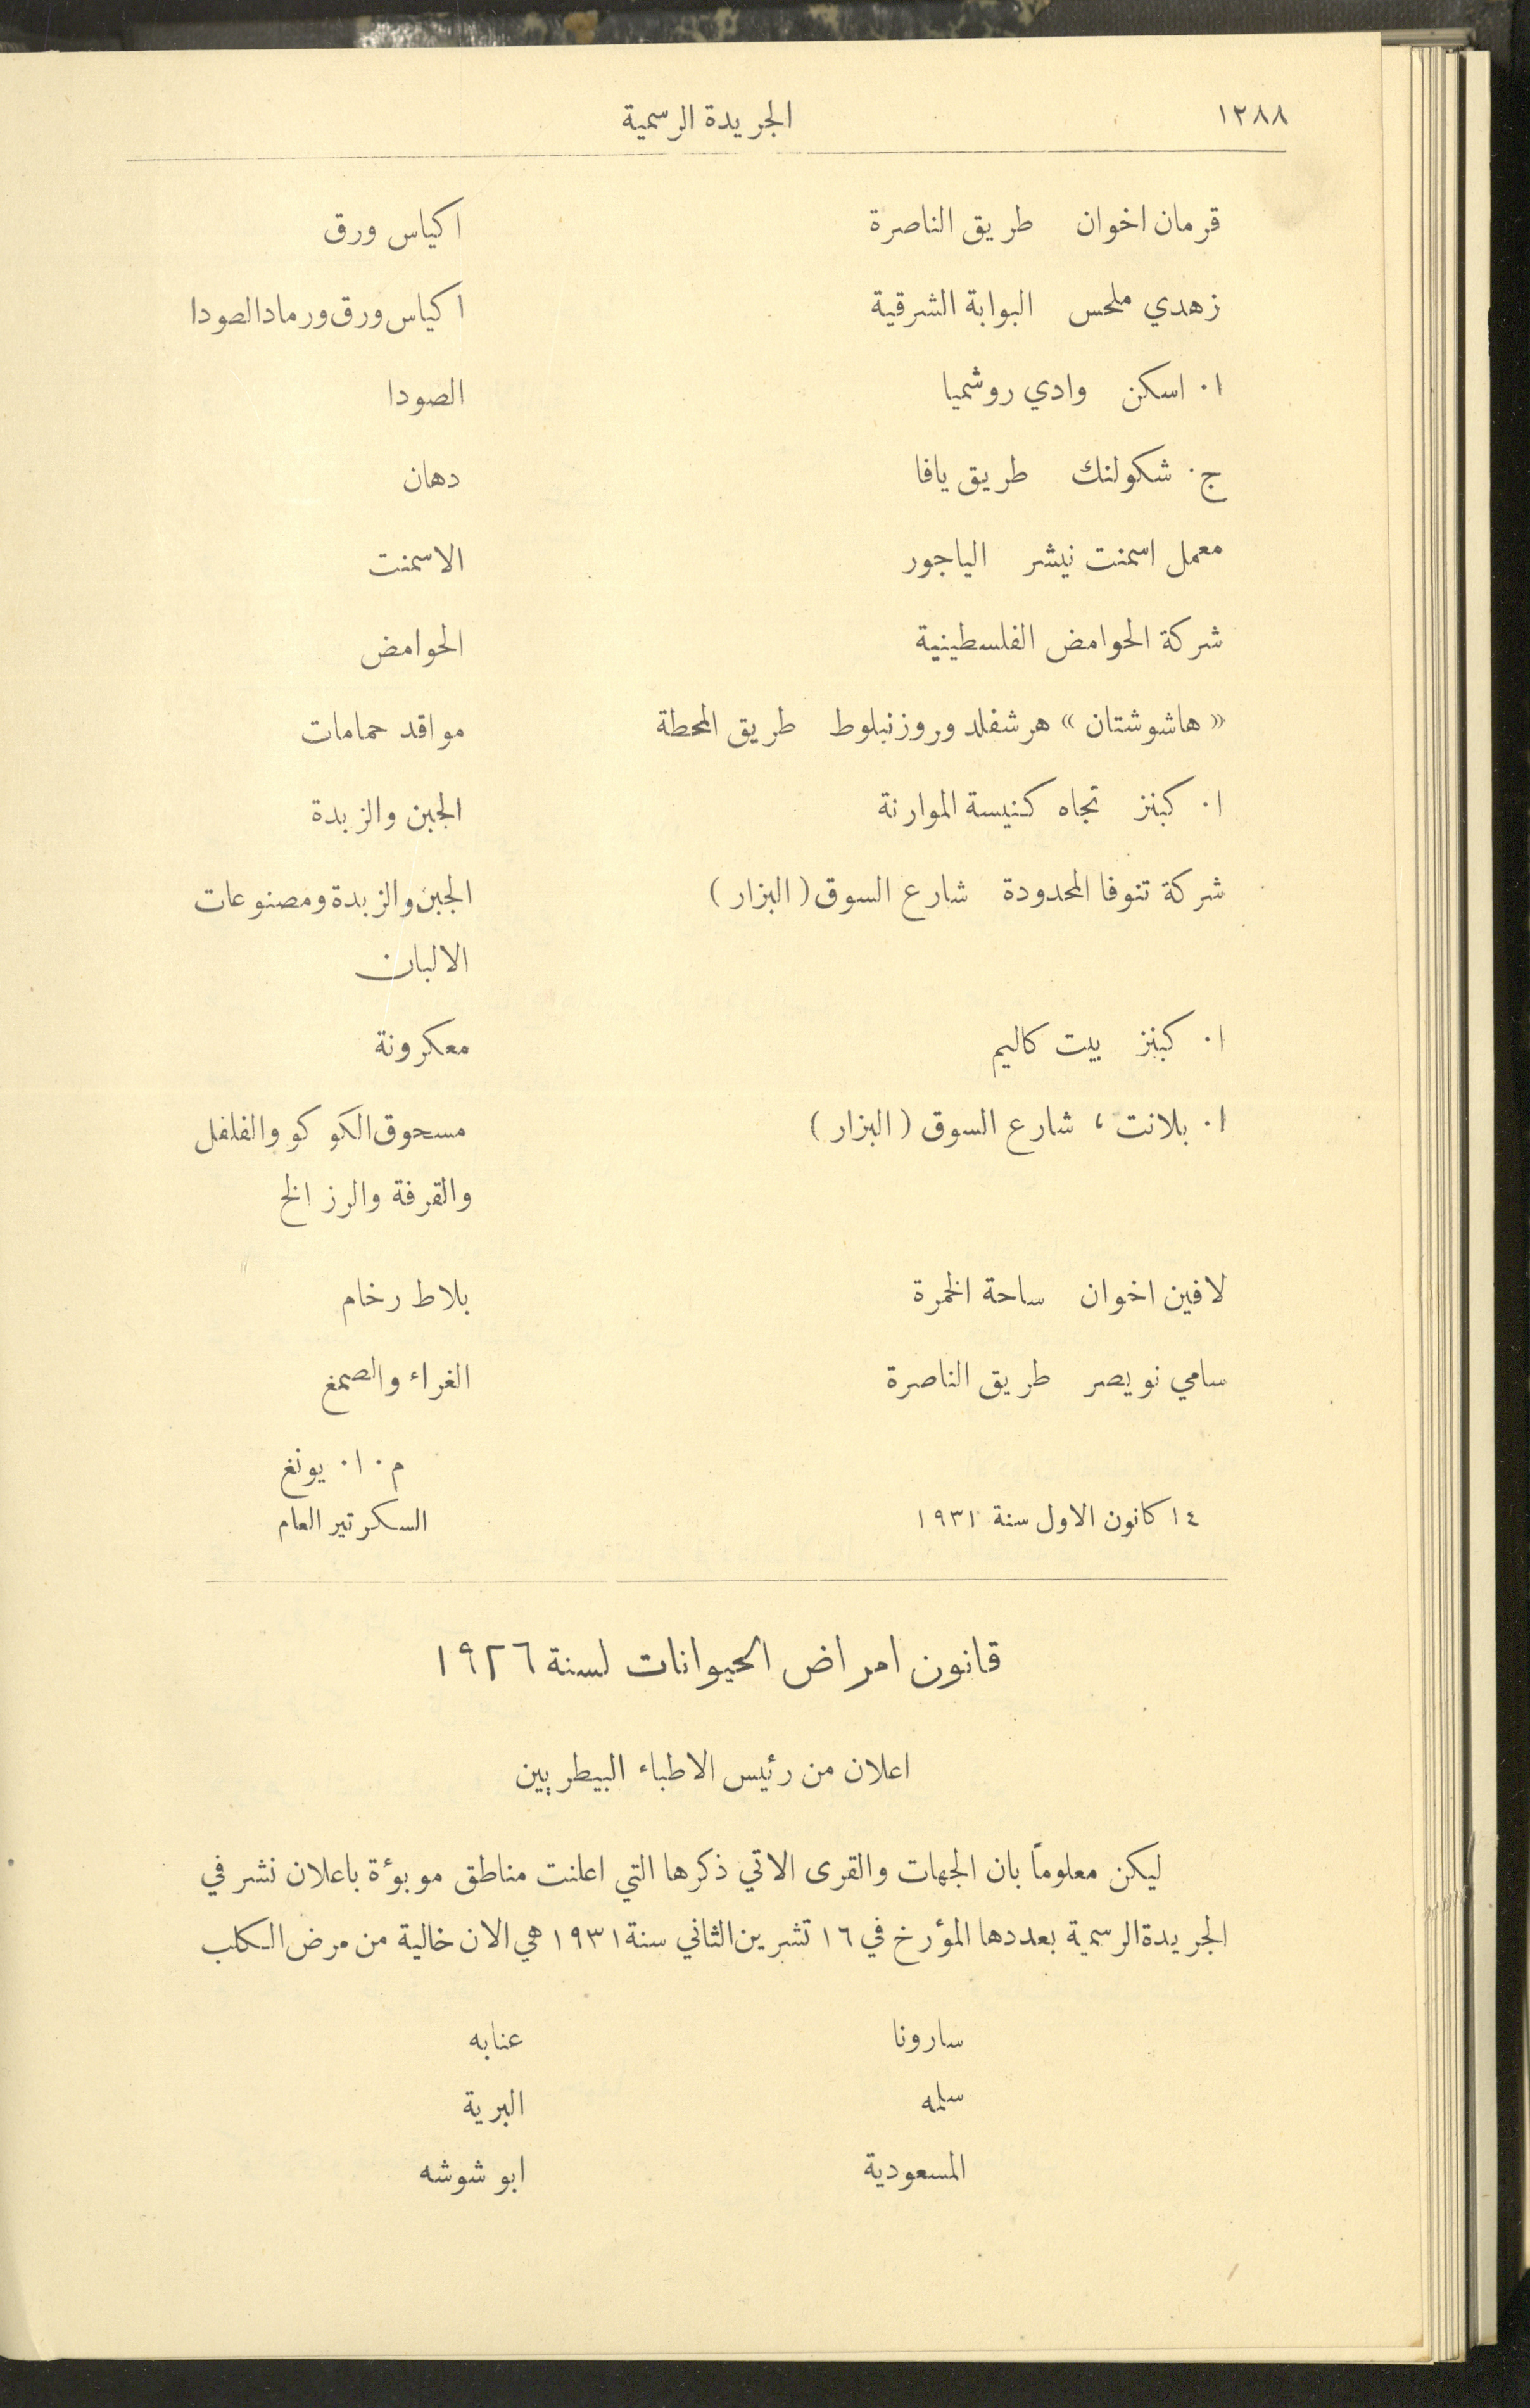 ١٢٨٨ الجريدة الرسمية
قرمان اخوان طريق الناصرة اكياس ورق
زهدي ملحس البوابة الشرقية اكياس ورق ورماد الصودا
ا. اسكن وادي روشميا الصودا
ج. شكولنك طريق يافا دهان
معمل اسمنت نيشر الياجور الاسمنت
شركة الحوامض الفلسطينية الحوامض
« هاشوشتان » هرشفلد وروزنبلوط طريق المحطة مواقد حمامات
ا. كبنز تجاه كنيسة الموارنة الجبن والزبدة
شركة تنوفا المحدودة شارع السوق ( البزار ) الجبن والزبدة ومصنوعات
الالبان
ا. كبنز بيت كاليم معكرونة
ا. بلانت ، شارع السوق ( البزار ) مسحوق الكوكو والفلفل
والقرفة والرز الخ
لافين اخوان ساحة الخمرة بلاط رخام
سامي نويصر طريق الناصرة الغراء والصمغ
م. ا. يونغ
١٤ كانون الاول سنة ١٩٣١ السكرتير العام
قانون امراض الحيوانات لسنة ١٩٢٦
اعلان من رئيس الاطباء البيطريين
ليكن معلوماً بان الجهات والقرى الاتي ذكرها التي اعلنت مناطق موبوءة باعلان نشر في
الجريدة الرسمية بعددها المؤرخ في ١٦ تشرين الثاني سنة ١٩٣١ هي الان خالية من مرض الكلب
سارونا عنابه
سلمه البرية
المسعودية ابو شوشه